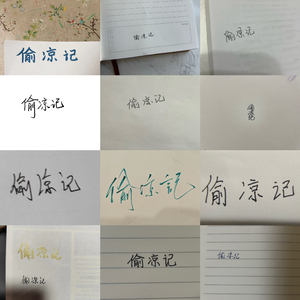 偷凉记
偷凉记
偷凉记
偷凉记
偷凉记
偷凉记
偷凉記
偷凉记
偷凉记
偷凉记
偷凉记
偷凉记